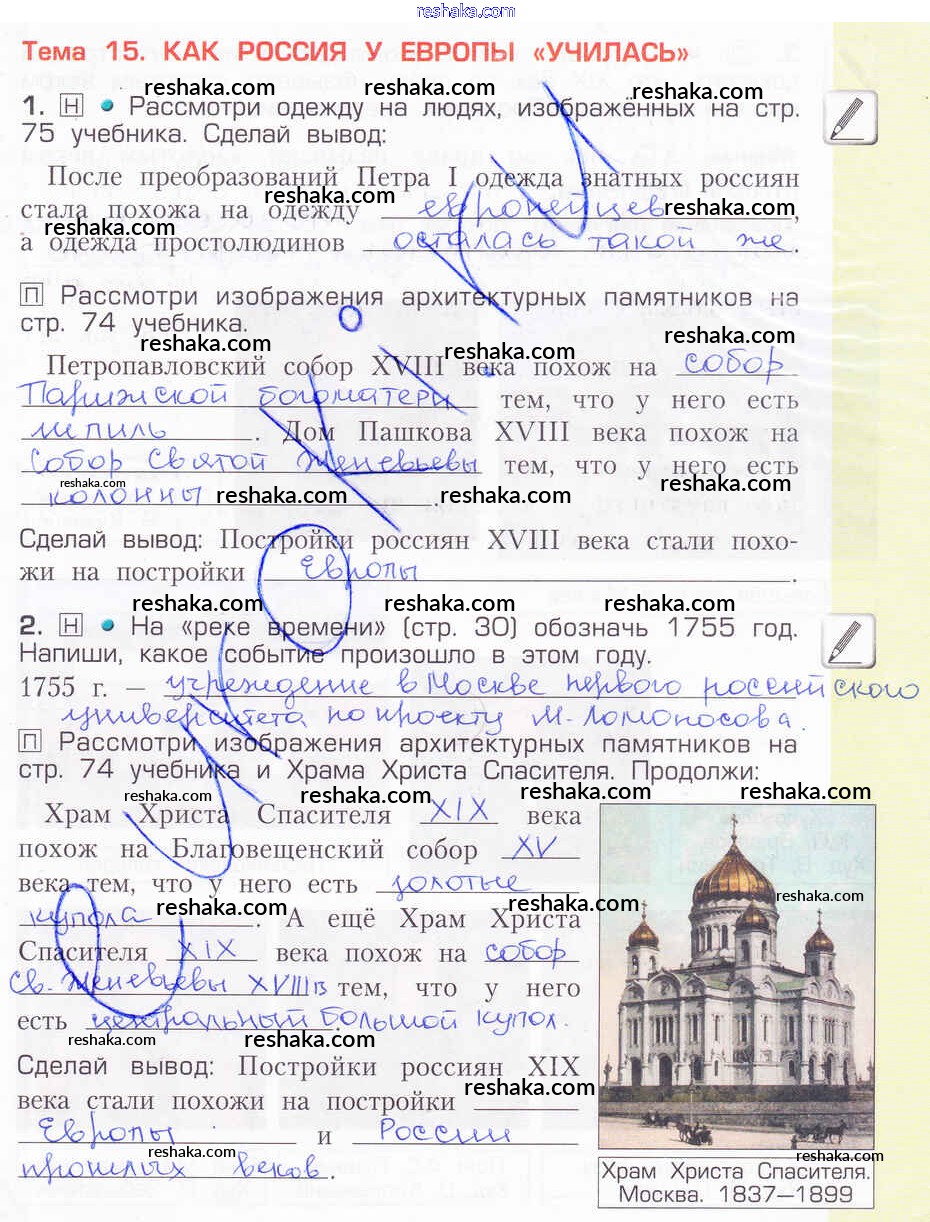 reshaka.com
Тема 15. КАК РОССИЯ У ЕВРОПЫ «УЧИЛАСЬ»
reshaka.com reshaka.com reshaka.com
1. Н • Рассмотри одежду на людях, изображённых на стр.
75 учебника. Сделай вывод:
После преобразований Петра I одежда знатных россиян
reshaka.com reshaka.com
стала похожа на одежду европейцев,
reshaka.com
а одежда простолюдинов осталась такой же.
П Рассмотри изображения архитектурных памятников на
стр. 74 учебника.
reshaka.com reshaka.com reshaka.com
Петропавловский собор XVIII века похож на собор
Парижской богоматери тем, что у него есть
шпиль. Дом Пашкова XVIII века похож на
собор Святой Женевьевы тем, что у него есть
reshaka.com reshaka.com reshaka.com reshaka.com
колонны.
Сделай вывод: Постройки россиян XVIII века стали похо-
жи на постройки Европы.
reshaka.com reshaka.com reshaka.com
2. Н • На «реке времени» (стр. 30) обозначь 1755 год.
Напиши, какое событие произошло в этом году.
1755 г. — учреждение в Москве первого российского
университета по проекту М. Ломоносова.
П Рассмотри изображения архитектурных памятников на
стр. 74 учебника и Храма Христа Спасителя. Продолжи:
reshaka.com reshaka.com reshaka.com
Храм Христа Спасителя XIX века
похож на Благовещенский собор XV
века тем, что у него есть золотые
reshaka.com reshaka.com reshaka.com
купола. А ещё Храм Христа
Спасителя XIX века похож на собор
Св. Женевьевы XVIII в тем, что у него
есть центральный большой купол.
reshaka.com reshaka.com
Сделай вывод: Постройки россиян XIX
reshaka.com
века стали похожи на постройки
Европы и России
прошлых веков.
Храм Христа Спасителя.
Москва. 1837—1899
UKOKI.RU